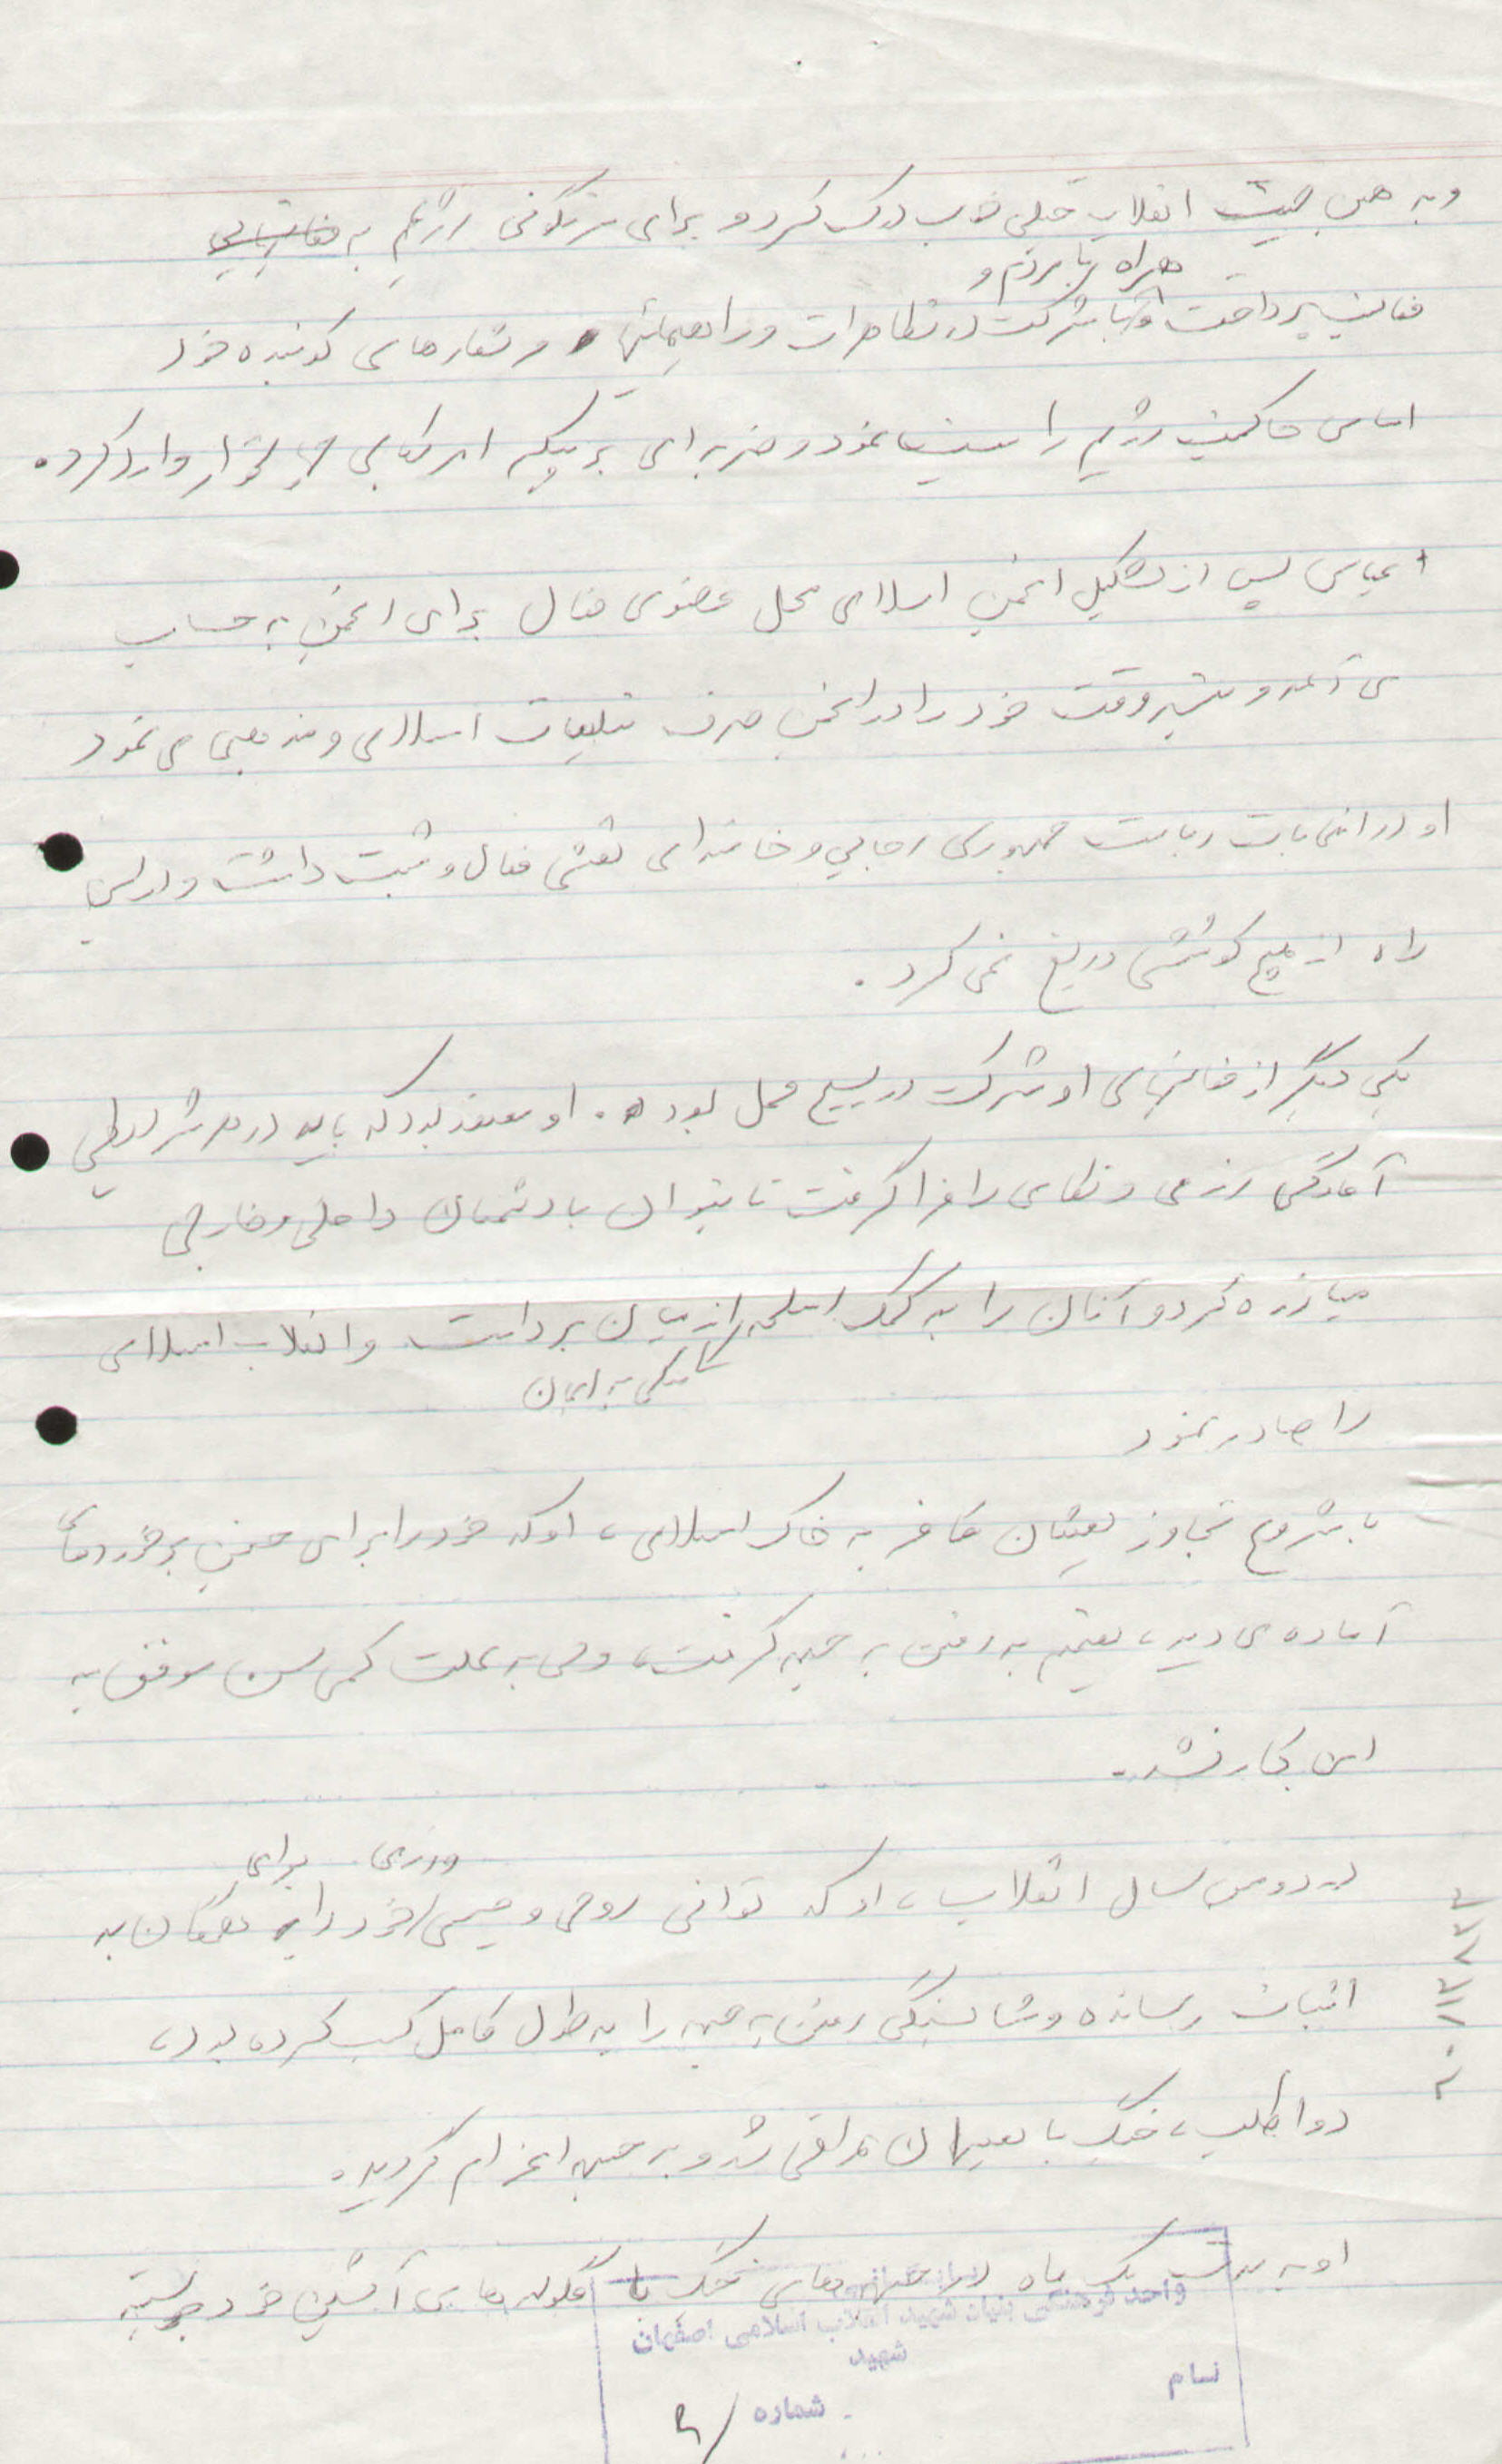 و به همین جهت انقلاب خیلی خوب درک کرد و برای سرنگونی رژیم به فعالیتهایی
همراه با مردم و
فعالیت پرداخت و با شرکت در تظاهرات و راهپیمائیها و شعارهای کوبنده خود
اساس حاکمیت رژیم را سست نمود و ضربه ای بر پیکر امریکایی وارد کرد.
عباس پس از تشکیل انجمن اسلامی محل عضوی فعال برای انجمن به حساب
می آمد و بیشتر وقت خود را در انجمن صرف تبلیغات اسلامی و مذهبی می نمود
او در انتخابات ریاست جمهوری رجایی و خامنه ای نقشی فعال و مثبت داشت و در این
راه از هیچ کوششی دریغ نمی کرد.
یکی دیگر از فعالیتهای او شرکت در بسیج محل بود. او معتقد بود که باید در هر شرایطی
آمادگی رزمی و نظامی را فرا گرفت تا بتوان با دشمنان داخلی و خارجی
مبارزه کرد و آنان را به کمک اسلحه از میان برداشت و انقلاب اسلامی
متکی به ایمان
را صادر نمود
با شروع تجاوز بعثیان کافر به خاک اسلامی، او که خود را برای چنین برخوردهای
آماده می دید، تصمیم به رفتن به جبهه گرفت، ولی به علت کمی سن موفق به
این کار نشد.
در دومین سال انقلاب، او که توانی روحی و جسمی خود را به همگان به
ورزمی برای
اثبات رسانده و شایستگی رفتن به جبهه را به طول کامل کسب کرده بود،
دواطلب، جنگ با بعثیهای عراقی شد و به جبهه اعزام گردید.
او به مدت یک ماه در جبهه های جنگ با گلوله های آتشین خود
واحد فرهنگی بنیاد شهید انقلاب اسلامی اصفهان
شهید
نام
شماره